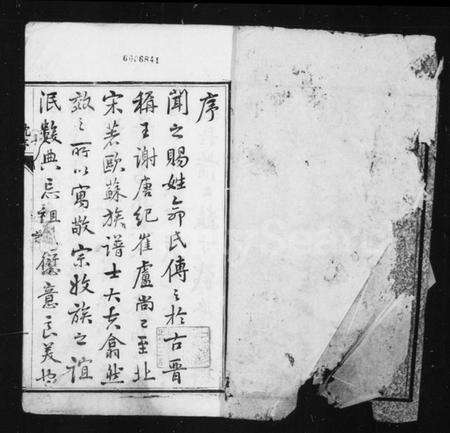 6606841
序
聞之賜姓命氏傳之於古晉
稱王謝唐紀崔盧尚已至北
宋若歐蘇族譜士大夫翕然
效之所以寓敬宗收族之誼
泯數典忘祖之愆意良美也